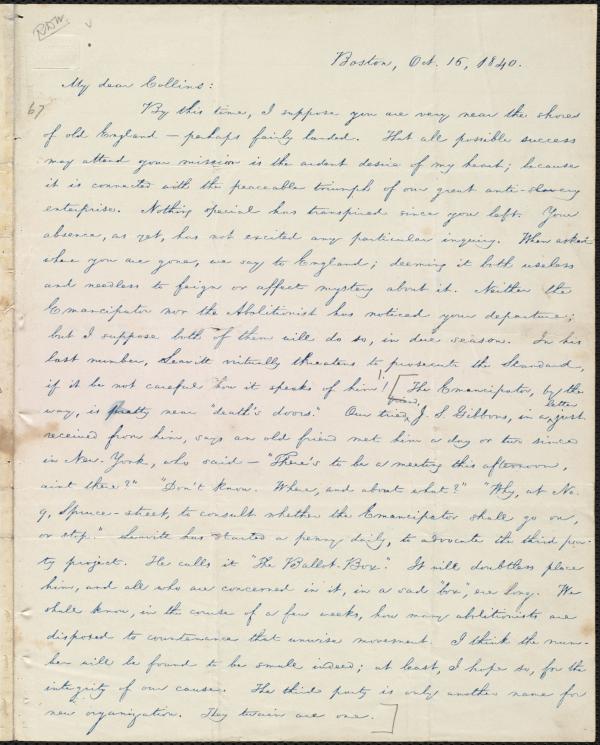 RDW.
Boston, Oct. 16, 1840.
My dear Collins:
67
By this time, I suppose you are very near the shores
of old England — perhaps fairly landed. That all possible success
may attend your mission is the ardent desire of my heart; because
it is connected with the peaceable triumph of our great anti-slavery
enterprise. Nothing special has transpired since you left. Your
absence, as yet, has not excited any particular inquiry. When asked
where you are gone, we say to England; deeming it both useless
and needless to feign or affect mystery about it. Neither the
Emancipator nor the Abolitionist has noticed your departure;
but I suppose both of them will do so, in due season. In his
last number, Leavitt virtually threatens to prosecute the Standard,
if it be not careful how it speaks of him! [The Emancipator, by the
way, is pretty near "death's doors." Our tried friend, J. S. Gibbons, in a letter just
received from him, says an old friend met him a day or two since
in New-York, who said — "There's to be a meeting this afternoon,
aint there?" "Don't know. Where, and about what?" "Why, at No.
9, Spruce-street, to consult whether the Emancipator shall go on,
or stop." Leavitt has started a penny daily, to advocate the third par-
ty project. He calls it "The Ballot-Box." It will doubtless place
him, and all who are concerned in it, in a sad "box", ere long. We
shall know, in the course of a few weeks, how many abolitionists are
disposed to countenance that unwise movement. I think the num-
ber will be found to be small indeed; at least, I hope so, for the
integrity of our cause. The third party is only another name for
new organization. They twain are one.]